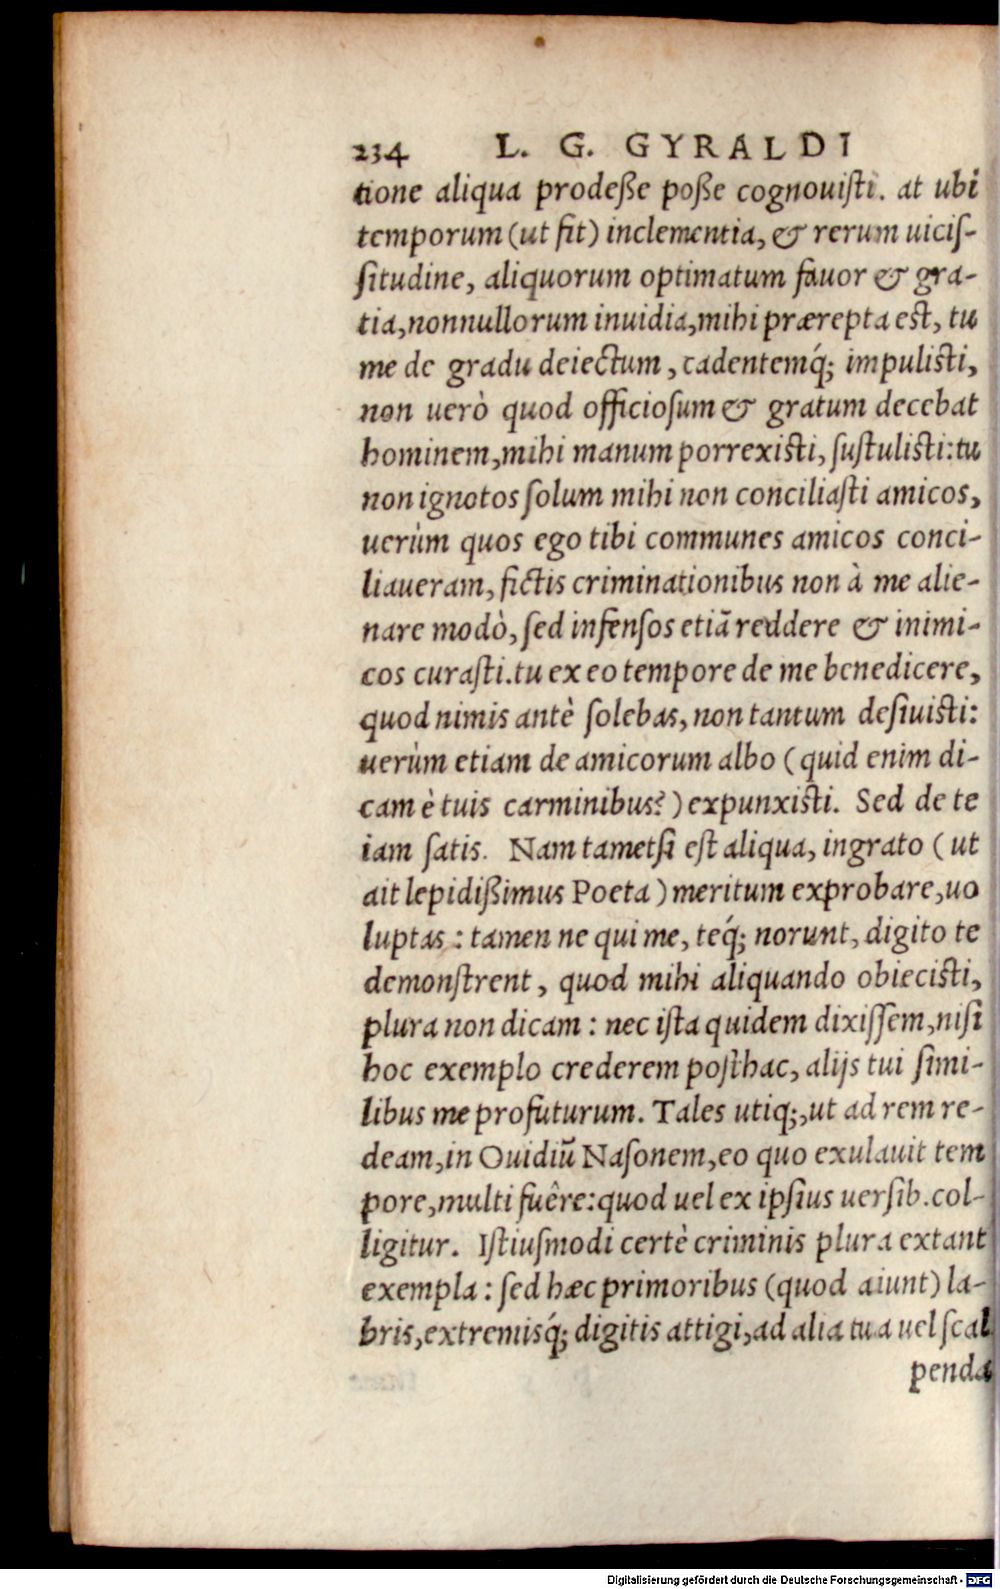 234 L. G. GYRALDI
tione aliqua prodeſſe poſſe cognouiſti. at ubi
temporum (ut fit) inclementia, & rerum uiciſ-
ſitudine, aliquorum optimatum fauor & gra-
tia, nonnullorum inuidia, mihi prærepta eſt, tu
me de gradu deiectum, cadentemq́; impuliſti,
non uerò quod officioſum & gratum decebat
hominem, mihi manum porrexiſti, ſuſtuliſti: tu
non ignotos ſolum mihi non conciliaſti amicos,
uerùm quos ego tibi communes amicos conci-
liaueram, fictis criminationibus non à me alie-
nare modò, ſed infenſos etiā reddere & inimi-
cos curaſti. tu ex eo tempore de me benedicere,
quod nimis antè ſolebas, non tantum deſiuiſti:
uerùm etiam de amicorum albo (quid enim di-
cam è tuis carminibus?) expunxiſti. Sed de te
iam ſatis. Nam tametſi eſt aliqua, ingrato (ut
ait lepidißimus Poeta) meritum exprobare, uo
luptas: tamen ne qui me, teq́; norunt, digito te
demonſtrent, quod mihi aliquando obieciſti,
plura non dicam: nec iſta quidem dixiſſem, niſi
hoc exemplo crederem poſthac, alijs tui ſimi-
libus me profuturum. Tales utiq;, ut ad rem re-
deam, in Ouidiū Naſonem, eo quo exulauit tem
pore, multi fuêre: quod uel ex ipſius uerſib. col-
ligitur. Iſtiuſmodi certè criminis plura extant
exempla: ſed hæc primoribus (quod aiunt) la-
bris, extremisq́; digitis attigi, ad alia tua uel ſcal
penda
Digitalisierung gefördert durch die Deutsche Forschungsgemeinschaft - DFG